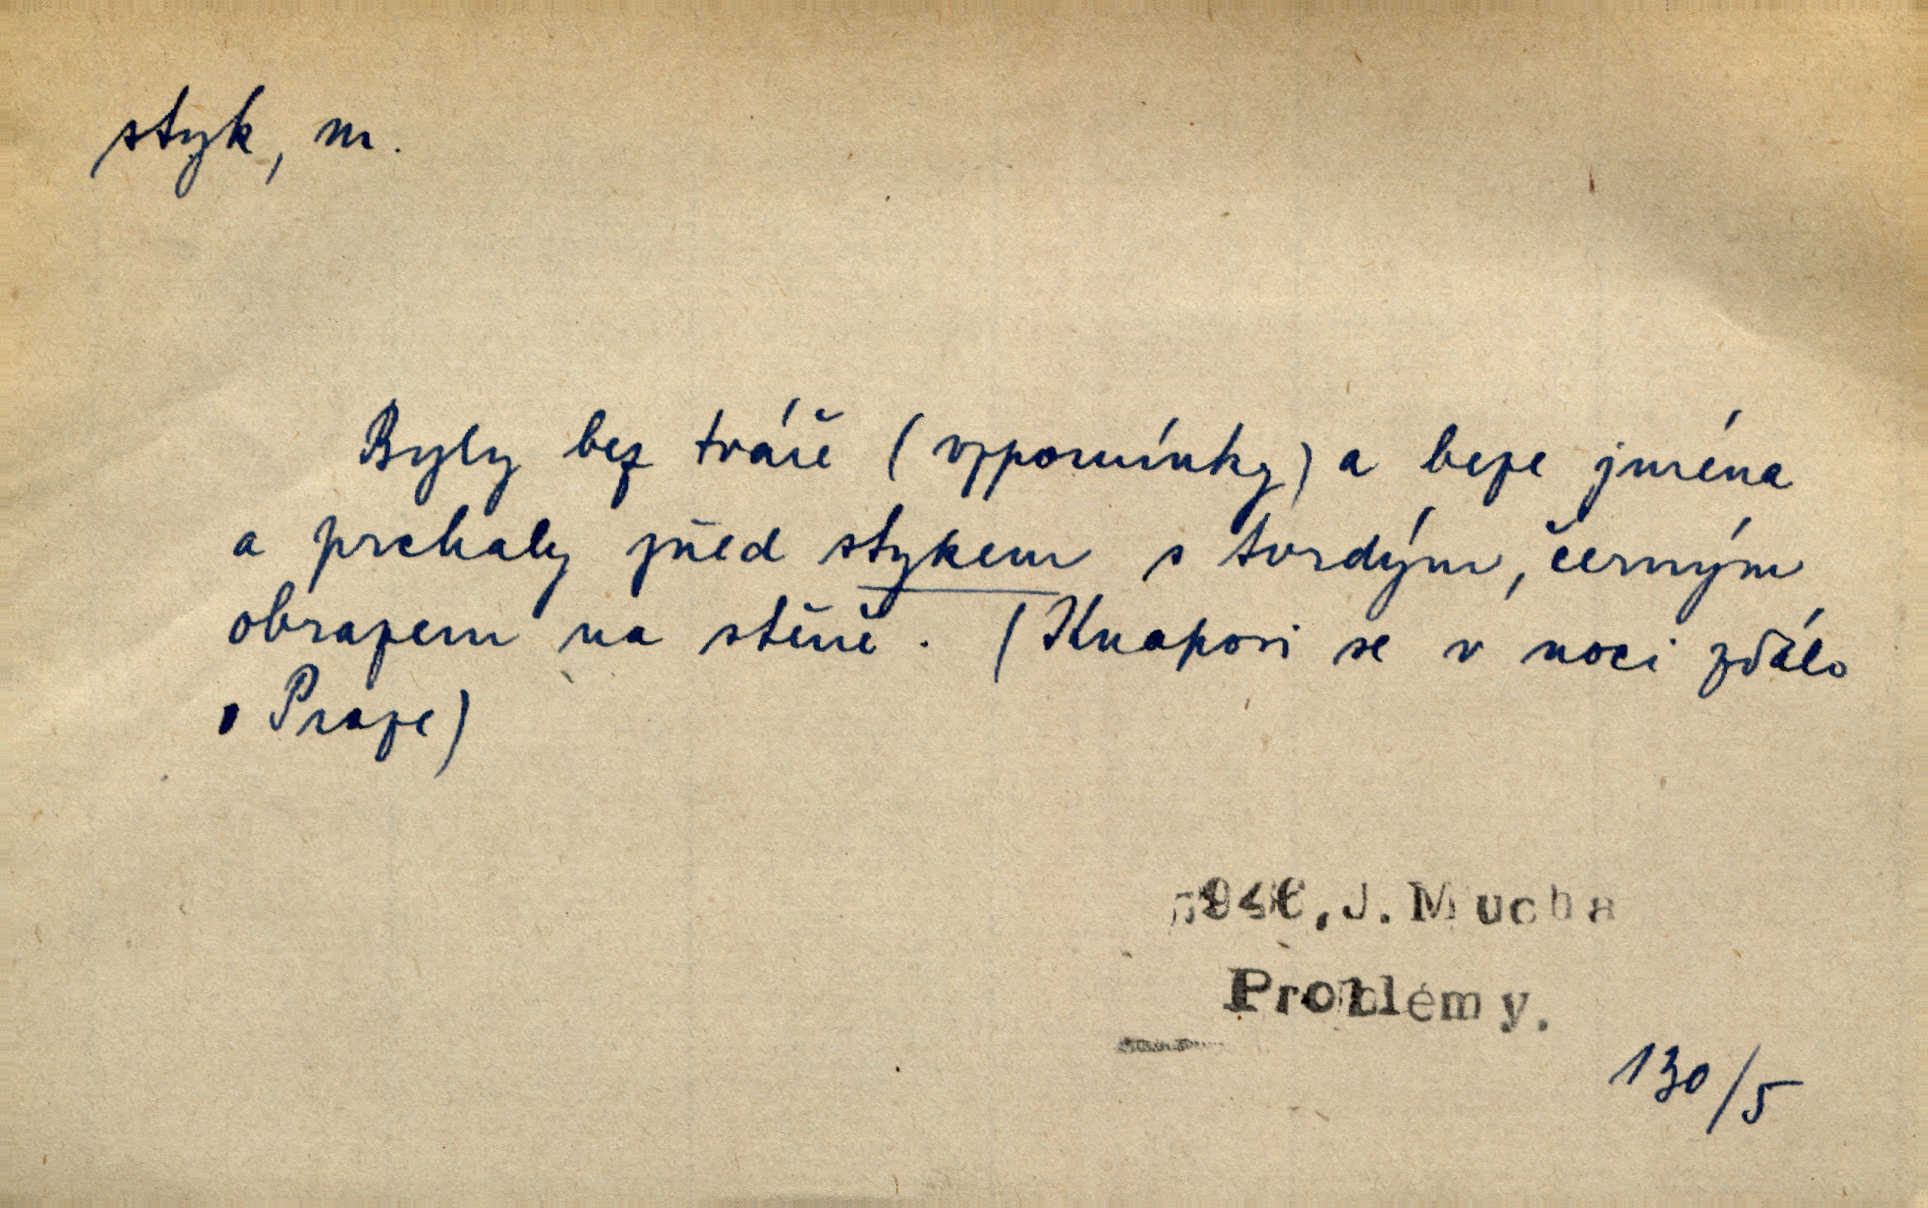 styk, m.
Byly bez tváře (vzpomínky) a beze jména
a prchaly před stykem s tvrdým, černým
obrazem na stěně. (Knapovi se v noci zdálo
o Praze)
1946, J. Mucha
Problémy.
130/5